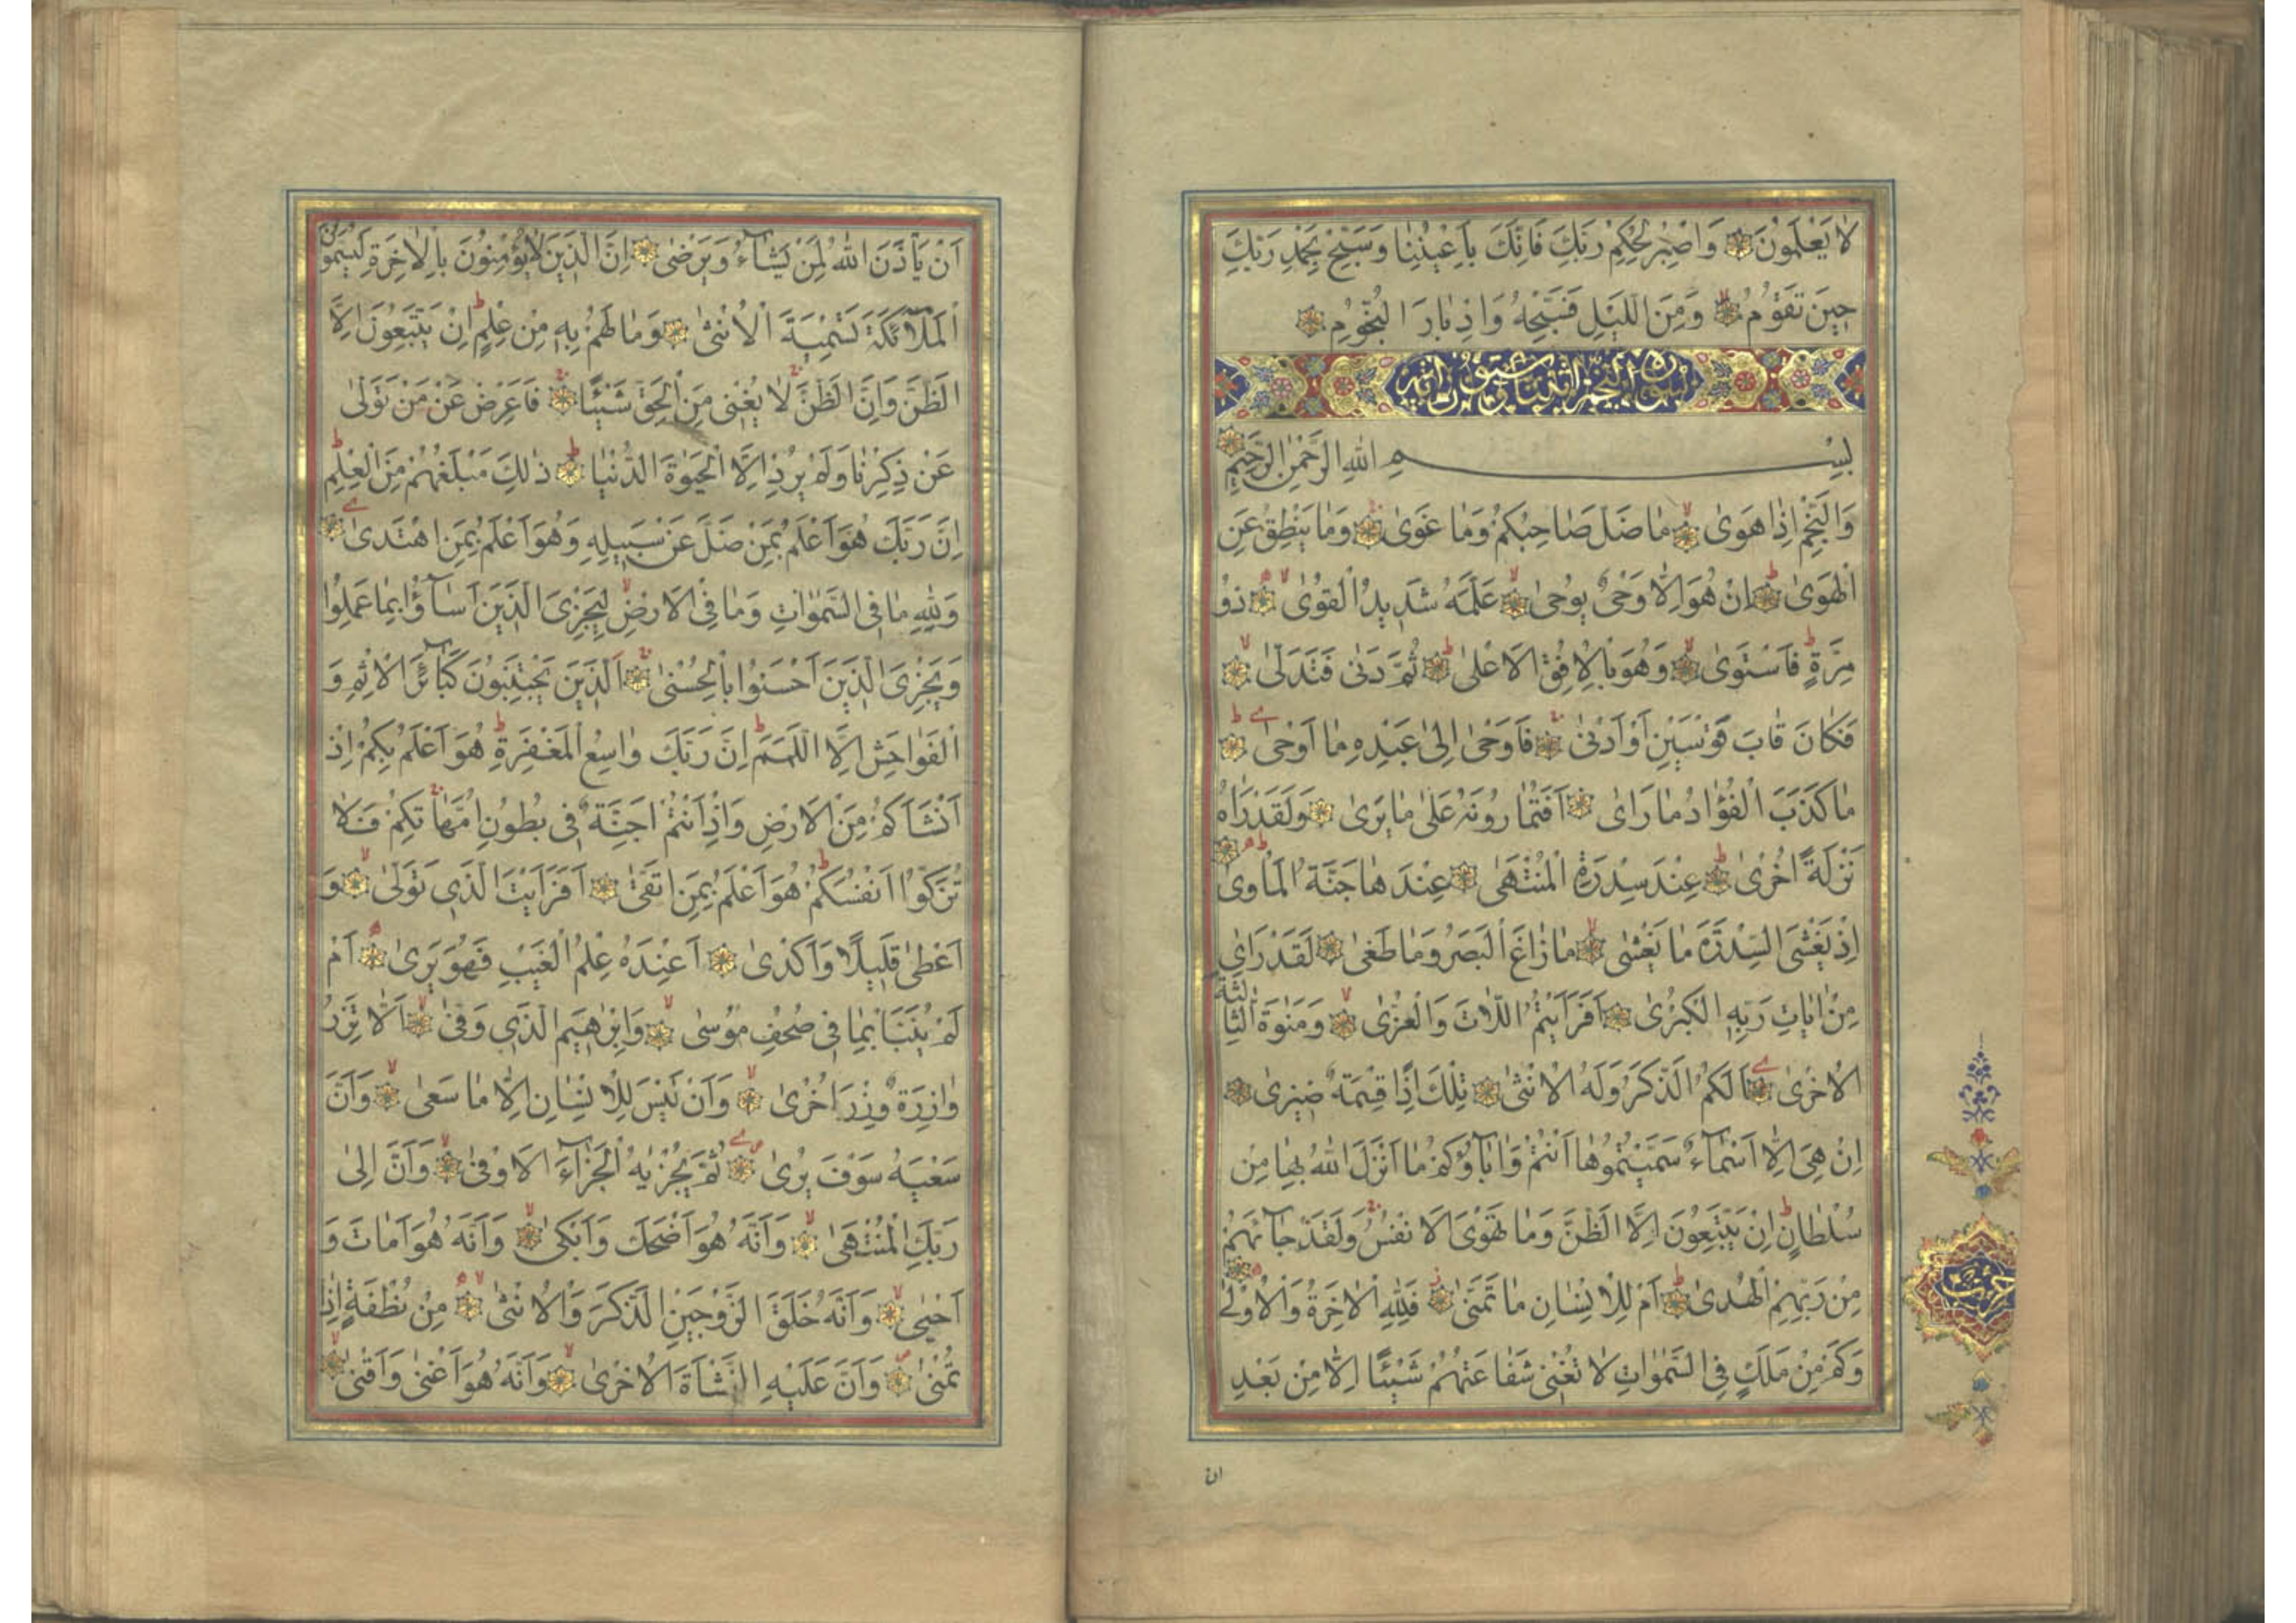 لَا يَعْلَمُونَ وَاصْبِرْ لِحُكْمِ رَبِّكَ فَاِنَّكَ بِاَعْيُنِنَا وَسَبِّحْ بِحَمْدِ رَبِّكَ
حِينَ تَقُومُ وَمِنَ الَّيْلِ فَسَبِّحْهُ وَاِدْبَارَ النُّجُومِ
سورة النجم اثنتان وستون آية
بِسْمِ اللهِ الرَّحْمٰنِ الرَّحِيمِ
وَالنَّجْمِ اِذَا هَوٰى مَا ضَلَّ صَاحِبُكُمْ وَمَا غَوٰى وَمَا يَنْطِقُ عَنِ
الْهَوٰى اِنْ هُوَ اِلَّا وَحْىٌ يُوحٰى عَلَّمَهُ شَدِيدُ الْقُوٰى ذُو
مِرَّةٍ فَاسْتَوٰى وَهُوَ بِالْاُفُقِ الْاَعْلٰى ثُمَّ دَنٰى فَتَدَلّٰى
فَكَانَ قَابَ قَوْسَيْنِ اَوْ اَدْنٰى فَاَوْحٰى اِلٰى عَبْدِهِ مَا اَوْحٰى
مَا كَذَبَ الْفُؤَادُ مَا رَاٰى اَفَتُمَارُونَهُ عَلٰى مَا يَرٰى وَلَقَدْ رَاٰهُ
نَزْلَةً اُخْرٰى عِنْدَ سِدْرَةِ الْمُنْتَهٰى عِنْدَهَا جَنَّةُ الْمَاْوٰى
اِذْ يَغْشَى السِّدْرَةَ مَا يَغْشٰى مَا زَاغَ الْبَصَرُ وَمَا طَغٰى لَقَدْ رَاٰى
مِنْ اٰيَاتِ رَبِّهِ الْكُبْرٰى اَفَرَاَيْتُمُ اللَّاتَ وَالْعُزّٰى وَمَنٰوةَ الثَّالِثَةَ
الْاُخْرٰى اَلَكُمُ الذَّكَرُ وَلَهُ الْاُنْثٰى تِلْكَ اِذًا قِسْمَةٌ ضِيزٰى
اِنْ هِىَ اِلَّا اَسْمَاءٌ سَمَّيْتُمُوهَا اَنْتُمْ وَاٰبَاؤُكُمْ مَا اَنْزَلَ اللهُ بِهَا مِنْ
سُلْطَانٍ اِنْ يَتَّبِعُونَ اِلَّا الظَّنَّ وَمَا تَهْوَى الْاَنْفُسُ وَلَقَدْ جَاءَهُمْ
مِنْ رَبِّهِمُ الْهُدٰى اَمْ لِلْاِنْسَانِ مَا تَمَنّٰى فَلِلّٰهِ الْاٰخِرَةُ وَالْاُولٰى
وَكَمْ مِنْ مَلَكٍ فِى السَّمٰوَاتِ لَا تُغْنِى شَفَاعَتُهُمْ شَيْئًا اِلَّا مِنْ بَعْدِ
حزب
ان
اَنْ يَاْذَنَ اللهُ لِمَنْ يَشَاءُ وَيَرْضٰى اِنَّ الَّذِينَ لَا يُؤْمِنُونَ بِالْاٰخِرَةِ لَيُسَمُّونَ
الْمَلٰٓئِكَةَ تَسْمِيَةَ الْاُنْثٰى وَمَا لَهُمْ بِهِ مِنْ عِلْمٍ اِنْ يَتَّبِعُونَ اِلَّا
الظَّنَّ وَاِنَّ الظَّنَّ لَا يُغْنِى مِنَ الْحَقِّ شَيْئًا فَاَعْرِضْ عَنْ مَنْ تَوَلّٰى
عَنْ ذِكْرِنَا وَلَمْ يُرِدْ اِلَّا الْحَيٰوةَ الدُّنْيَا ذٰلِكَ مَبْلَغُهُمْ مِنَ الْعِلْمِ
اِنَّ رَبَّكَ هُوَ اَعْلَمُ بِمَنْ ضَلَّ عَنْ سَبِيلِهِ وَهُوَ اَعْلَمُ بِمَنِ اهْتَدٰى
وَلِلّٰهِ مَا فِى السَّمٰوَاتِ وَمَا فِى الْاَرْضِ لِيَجْزِىَ الَّذِينَ اَسَاؤُا بِمَا عَمِلُوا
وَيَجْزِىَ الَّذِينَ اَحْسَنُوا بِالْحُسْنٰى اَلَّذِينَ يَجْتَنِبُونَ كَبَائِرَ الْاِثْمِ وَ
الْفَوَاحِشَ اِلَّا اللَّمَمَ اِنَّ رَبَّكَ وَاسِعُ الْمَغْفِرَةِ هُوَ اَعْلَمُ بِكُمْ اِذْ
اَنْشَاَكُمْ مِنَ الْاَرْضِ وَاِذْ اَنْتُمْ اَجِنَّةٌ فِى بُطُونِ اُمَّهَاتِكُمْ فَلَا
تُزَكُّوا اَنْفُسَكُمْ هُوَ اَعْلَمُ بِمَنِ اتَّقٰى اَفَرَاَيْتَ الَّذِى تَوَلّٰى وَ
اَعْطٰى قَلِيلًا وَاَكْدٰى اَعِنْدَهُ عِلْمُ الْغَيْبِ فَهُوَ يَرٰى اَمْ
لَمْ يُنَبَّاْ بِمَا فِى صُحُفِ مُوسٰى وَاِبْرٰهِيمَ الَّذِى وَفّٰى اَلَّا تَزِرُ
وَازِرَةٌ وِزْرَ اُخْرٰى وَاَنْ لَيْسَ لِلْاِنْسَانِ اِلَّا مَا سَعٰى وَاَنَّ
سَعْيَهُ سَوْفَ يُرٰى ثُمَّ يُجْزٰيهُ الْجَزَاءَ الْاَوْفٰى وَاَنَّ اِلٰى
رَبِّكَ الْمُنْتَهٰى وَاَنَّهُ هُوَ اَضْحَكَ وَاَبْكٰى وَاَنَّهُ هُوَ اَمَاتَ وَ
اَحْيٰى وَاَنَّهُ خَلَقَ الزَّوْجَيْنِ الذَّكَرَ وَالْاُنْثٰى مِنْ نُطْفَةٍ اِذَا
تُمْنٰى وَاَنَّ عَلَيْهِ النَّشْاَةَ الْاُخْرٰى وَاَنَّهُ هُوَ اَغْنٰى وَاَقْنٰى